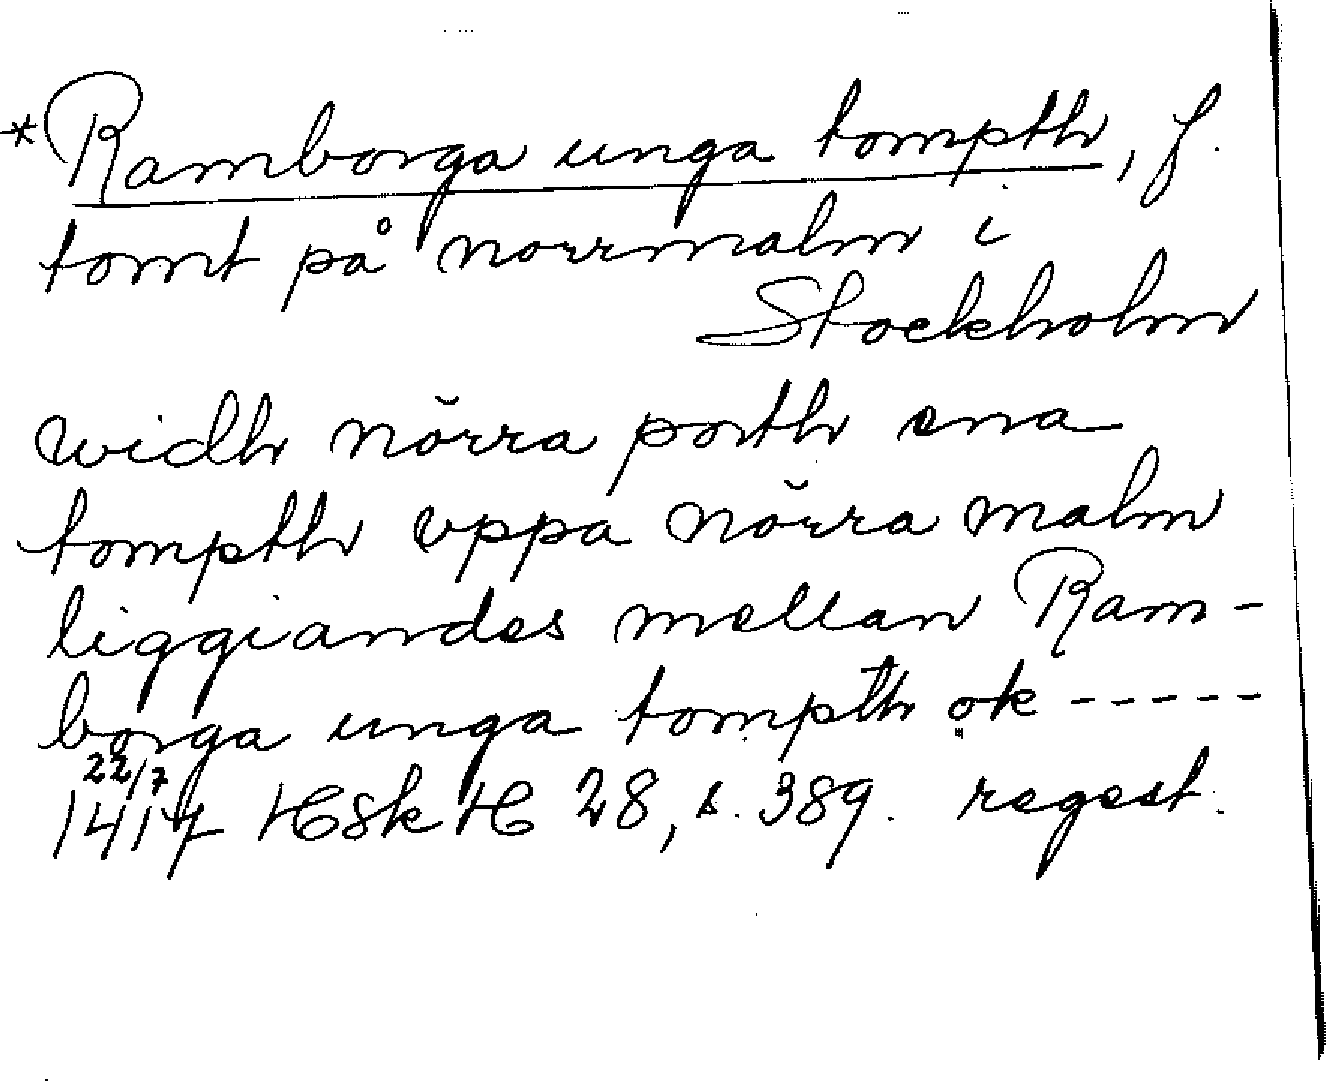 *Ramborga unga tompth, f.
tomt på norrmalm i
Stockholm
widh nŏrra porth ena
tompth vppa nŏrra malm
liggiandes mellan Ram-
borga unga tompth ok -----
22/7
1417 HSkH 28, s. 389. regest.